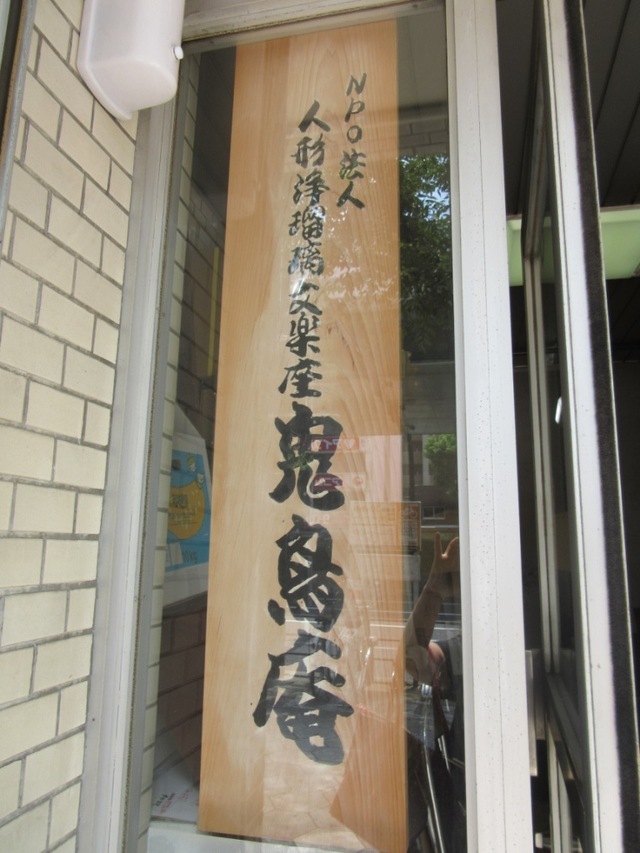 NPO法人
人形浄瑠璃文楽座
鬼鳥庵